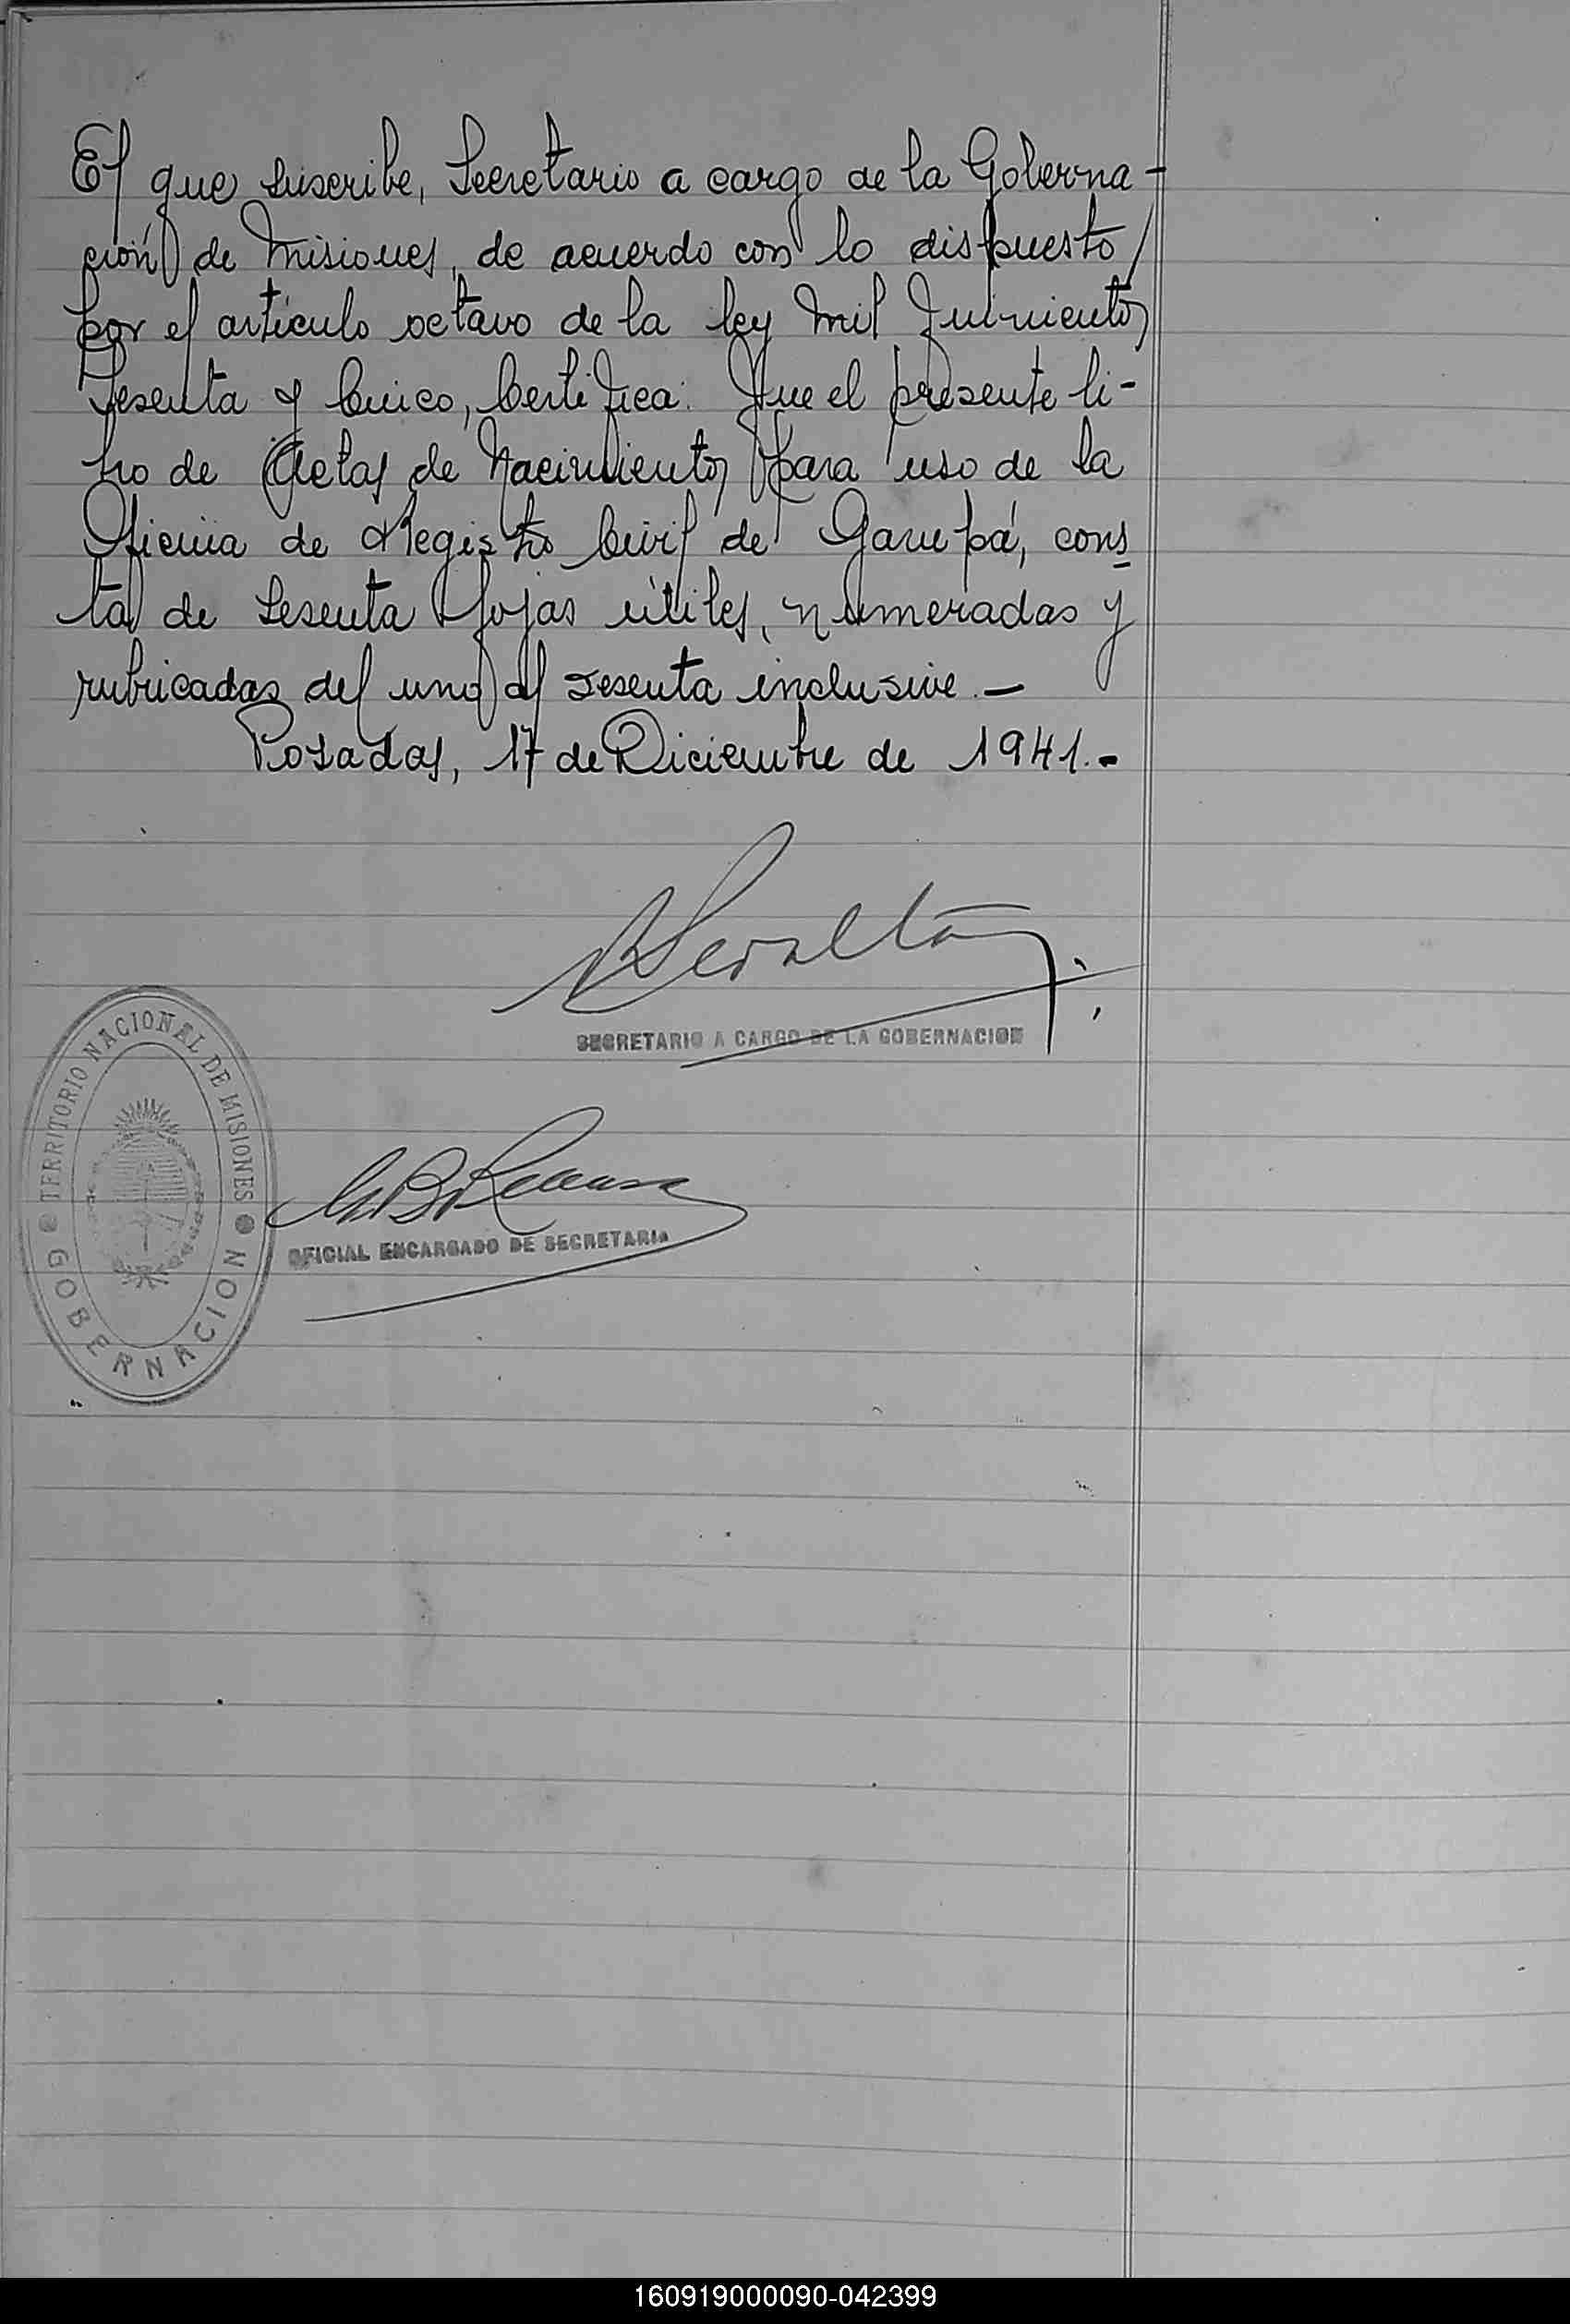 El que suscribe, Secretario a cargo de la Goberna-
ción de Misiones, de acuerdo con lo dispuesto/
por el artículo octavo de la ley mil Quinientos
Sesenta y Cinco, Certifica: Que el presente li-
bro de Actas de Nacimientos para uso de la
Oficina de Registro Civil de Garupá, cons
ta de sesenta fojas útiles, numeradas y
rubricadas del uno al sesenta inclusive.-
Posadas, 17 de Diciembre de 1941.-
SECRETARIO A CARGO DE LA GOBERNACION
TERRITORIO NACIONAL DE MISIONES
GOBERNACION
OFICIAL ENCARGADO DE SECRETARIA
160919000090-042399